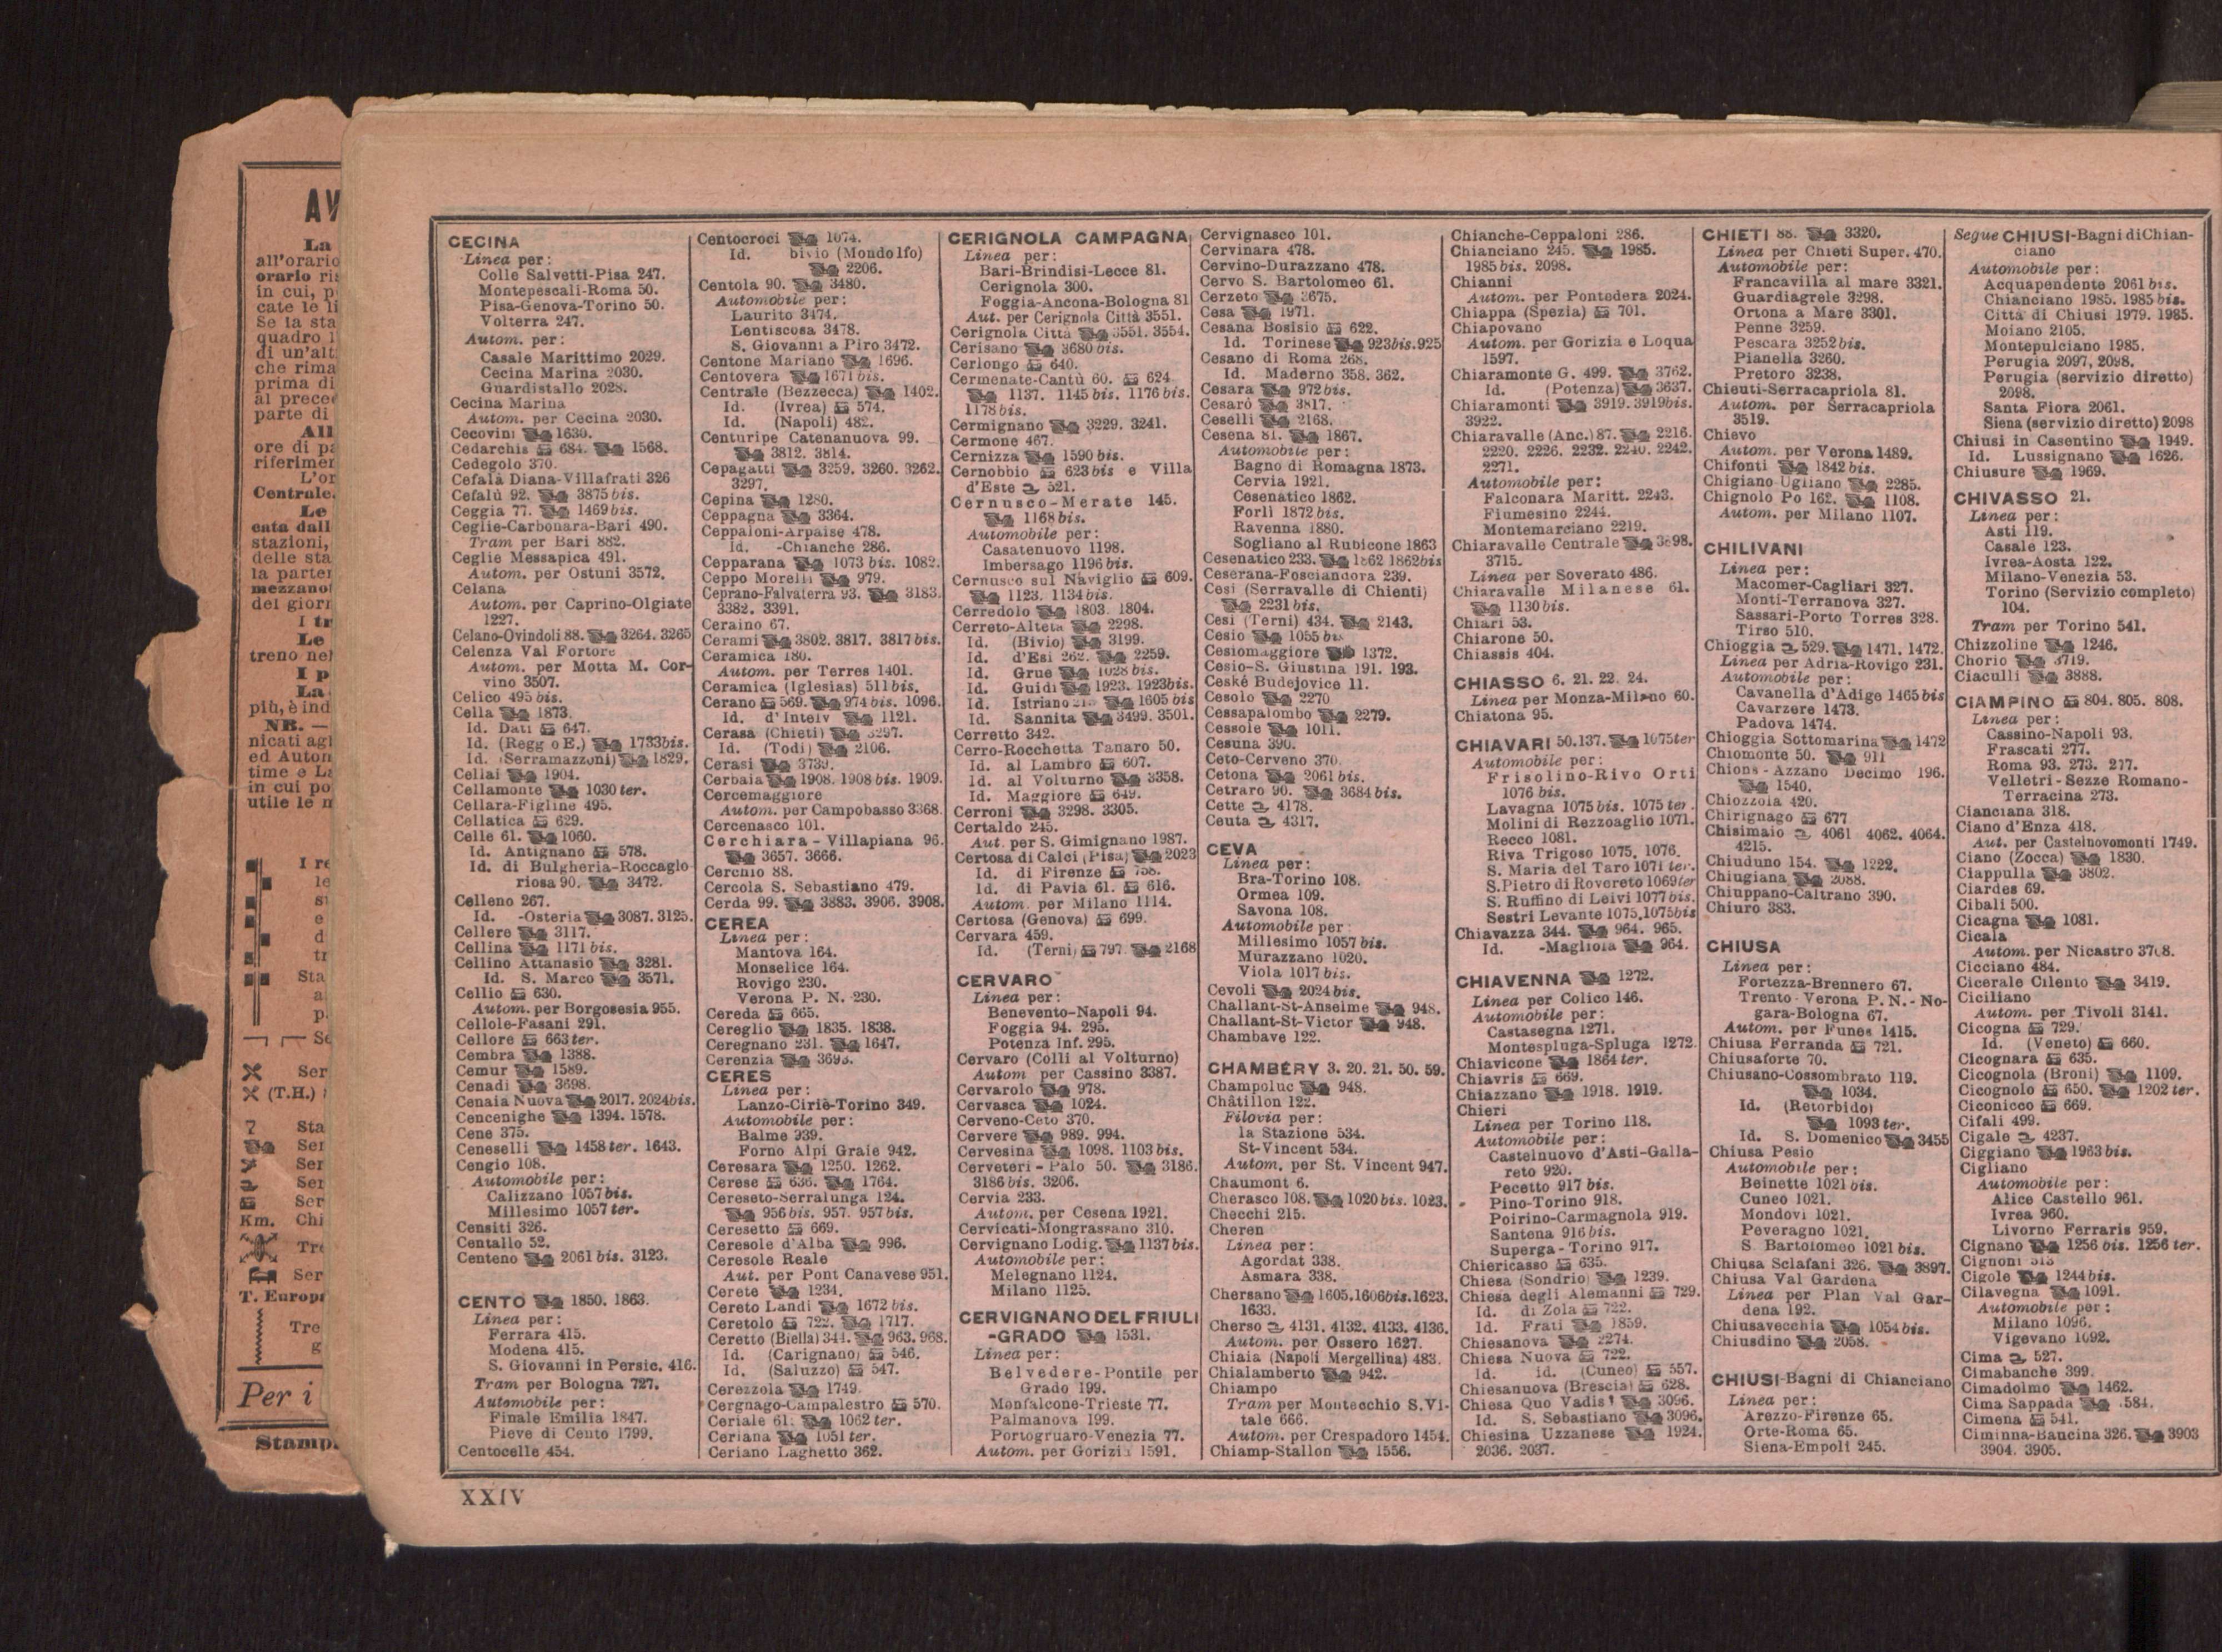 AV
La
all'orario
orario ri
in cui, p
cate le li
Se la sta
quadro 1
di un'alt
che rima
prima di
al preced
parte di
All
ore di pa
riferimer
L'or
Centrale.
Le
cata dall
stazioni,
delle sta
la parter
mezzanot
del giorn
I tr
Le
treno nel
I p
La
più, è ind
NB. —
nicati agl
ed Auton
time e La
in cui po
utile le n
I re
le
st
e
d
tr
Sta
a
p
Se
Ser
(T.H.)
? Sta
Ser
Ser
Ser
Ser
Km. Chi
Tre
Ser
T. Europ
Tre
g
Per i
Stamp
CECINA
Linea per:
Colle Salvetti-Pisa 247.
Montepescali-Roma 50.
Pisa-Genova-Torino 50.
Volterra 247.
Autom. per:
Casale Marittimo 2029.
Cecina Marina 2030.
Guardistallo 2028.
Cecina Marina
Autom. per Cecina 2030.
Cecovini 1630.
Cedarchis 684. 1568.
Cedegolo 370.
Cefalà Diana-Villafrati 326
Cefalù 92. 3875 bis.
Ceggia 77. 1469 bis.
Ceglie-Carbonara-Bari 490.
Tram per Bari 882.
Ceglie Messapica 491.
Autom. per Ostuni 3572.
Celana
Autom. per Caprino-Olgiate
1227.
Celano-Ovindoli 88. 3264. 3265
Celenza Val Fortore
Autom. per Motta M. Cor-
vino 3507.
Celico 495 bis.
Cella 1873.
Id. Dati 647.
Id. (Regg o E.) 1733bis.
Id. (Serramazzoni) 1829.
Cellai 1904.
Cellamonte 1030 ter.
Cellara-Figline 495.
Cellatica 629.
Celle 61. 1060.
Id. Antignano 578.
Id. di Bulgheria-Roccaglo-
riosa 90. 3472.
Celleno 267.
Id. -Osteria 3087. 3125.
Cellere 3117.
Cellina 1171 bis.
Cellino Attanasio 3281.
Id. S. Marco 3571.
Cellio 630.
Autom. per Borgosesia 955.
Cellole-Fasani 291.
Cellore 663 ter.
Cembra 1388.
Cemur 1589.
Cenadi 3698.
Cenaia Nuova 2017. 2024bis.
Cencenighe 1394. 1578.
Cene 375.
Ceneselli 1458 ter. 1643.
Cengio 108.
Automobile per:
Calizzano 1057 bis.
Millesimo 1057 ter.
Censiti 326.
Centallo 52.
Centeno 2061 bis. 3123.
CENTO 1850. 1863.
Linea per:
Ferrara 415.
Modena 415.
S. Giovanni in Persic. 416.
Tram per Bologna 727.
Automobile per:
Finale Emilia 1847.
Pieve di Cento 1799.
Centocelle 454.
Centocroci 1074.
Id. bivio (Mondolfo)
2206.
Centola 90. 3480.
Automobile per:
Laurito 3474.
Lentiscosa 3478.
S. Giovanni a Piro 3472.
Centone Mariano 1696.
Centovera 1671 bis.
Centrale (Bezzecca) 1402.
Id. (Ivrea) 574.
Id. (Napoli) 482.
Centuripe Catenanuova 99.
3812. 3814.
Cepagatti 3259. 3260. 3262.
3297.
Cepina 1280.
Ceppagna 3364.
Ceppaloni-Arpaise 478.
Id. -Chianche 286.
Cepparana 1073 bis. 1082.
Ceppo Morelli 979.
Ceprano-Falvaterra 93. 3183.
3382. 3391.
Ceraino 67.
Cerami 3802. 3817. 3817 bis.
Ceramica 180.
Autom. per Terres 1401.
Ceramica (Iglesias) 511 bis.
Cerano 569. 974 bis. 1096.
Id. d'Intelv 1121.
Cerasa (Chieti) 3297.
Id. (Todi) 2106.
Cerasi 3739.
Cerbaia 1908. 1908 bis. 1909.
Cercemaggiore
Autom. per Campobasso 3368.
Cercenasco 101.
Cerchiara-Villapiana 96.
3657. 3666.
Cerchio 88.
Cercola S. Sebastiano 479.
Cerda 99. 3883. 3906. 3908.
CEREA
Linea per:
Mantova 164.
Monselice 164.
Rovigo 230.
Verona P. N. 230.
Cereda 665.
Cereglio 1835. 1838.
Ceregnano 231. 1647.
Cerenzia 3693.
CERES
Linea per:
Lanzo-Ciriè-Torino 349.
Automobile per:
Balme 939.
Forno Alpi Graie 942.
Ceresara 1250. 1262.
Cerese 636. 1764.
Cereseto-Serralunga 124.
956 bis. 957. 957 bis.
Ceresetto 669.
Ceresole d'Alba 996.
Ceresole Reale
Aut. per Pont Canavese 951.
Cerete 1234.
Cereto Landi 1672 bis.
Ceretolo 722. 1717.
Ceretto (Biella) 344. 963. 968.
Id. (Carignano) 546.
Id. (Saluzzo) 547.
Cerezzola 1749.
Cergnago-Campalestro 570.
Ceriale 61. 1062 ter.
Ceriana 1051 ter.
Ceriano Laghetto 362.
CERIGNOLA CAMPAGNA
Linea per:
Bari-Brindisi-Lecce 81.
Cerignola 300.
Foggia-Ancona-Bologna 81
Aut. per Cerignola Città 3551.
Cerignola Città 3551. 3554.
Cerisano 3680 bis.
Cerlongo 640.
Cermenate-Cantù 60. 624
1137. 1145 bis. 1176 bis.
1178 bis.
Cermignano 3229. 3241.
Cermone 467.
Cernizza 1590 bis.
Cernobbio 623 bis e Villa
d'Este 521.
Cernusco-Merate 145.
1168 bis.
Automobile per:
Casatenuovo 1198.
Imbersago 1196 bis.
Cernusco sul Naviglio 609.
1123. 1134 bis.
Cerredolo 1803. 1804.
Cerreto-Alteta 2298.
Id. (Bivio) 3199.
Id. d'Esi 262. 2259.
Id. Grue 1028 bis.
Id. Guidi 1923. 1923bis.
Id. Istriano 1605 bis
Id. Sannita 3499. 3501.
Cerretto 342.
Cerro-Rocchetta Tanaro 50.
Id. al Lambro 607.
Id. al Volturno 3358.
Id. Maggiore 649.
Cerroni 3298. 3305.
Certaldo 245.
Aut. per S. Gimignano 1987.
Certosa di Calci (Pisa) 2023
Id. di Firenze 758.
Id. di Pavia 61. 616.
Autom. per Milano 1114.
Certosa (Genova) 699.
Cervara 459.
Id. (Terni) 797. 2168
CERVARO
Linea per:
Benevento-Napoli 94.
Foggia 94. 295.
Potenza Inf. 295.
Cervaro (Colli al Volturno)
Autom per Cassino 3387.
Cervarolo 978.
Cervasca 1024.
Cerveno-Ceto 370.
Cervere 989. 994.
Cervesina 1098. 1103 bis.
Cerveteri-Palo 50. 3186.
3186 bis. 3206.
Cervia 233.
Autom. per Cesena 1921.
Cervicati-Mongrassano 310.
Cervignano Lodig. 1137 bis.
Automobile per:
Melegnano 1124.
Milano 1125.
CERVIGNANO DEL FRIULI
-GRADO 1531.
Linea per:
Belvedere-Pontile per
Grado 199.
Monfalcone-Trieste 77.
Palmanova 199.
Portogruaro-Venezia 77.
Autom. per Gorizia 1591.
Cervignasco 101.
Cervinara 478.
Cervino-Durazzano 478.
Cervo S. Bartolomeo 61.
Cerzeto 3675.
Cesa 1971.
Cesana Bosisio 622.
Id. Torinese 923bis.925
Cesano di Roma 268.
Id. Maderno 358. 362.
Cesara 972 bis.
Cesarò 3817.
Ceselli 2168.
Cesena 81. 1867.
Automobile per:
Bagno di Romagna 1873.
Cervia 1921.
Cesenatico 1862.
Forlì 1872 bis.
Ravenna 1880.
Sogliano al Rubicone 1863
Cesenatico 233. 1862 1862bis
Ceserana-Fosciandora 239.
Cesi (Serravalle di Chienti)
2231 bis.
Cesi (Terni) 434. 2143.
Cesio 1055 bis
Cesiomaggiore 1372.
Cesio-S. Giustina 191. 193.
Ceské Budejovice 11.
Cesolo 2270
Cessapalombo 2279.
Cessole 1011.
Cesuna 390.
Ceto-Cerveno 370.
Cetona 2061 bis.
Cetraro 90. 3684 bis.
Cette 4178.
Ceuta 4317.
CEVA
Linea per:
Bra-Torino 108.
Ormea 109.
Savona 108.
Automobile per
Millesimo 1057 bis.
Murazzano 1020.
Viola 1017 bis.
Cevoli 2024 bis.
Challant-St-Anselme 948.
Challant-St-Victor 948.
Chambave 122.
CHAMBÉRY 3. 20. 21. 50. 59.
Champoluc 948.
Châtillon 122.
Filovia per:
la Stazione 534.
St-Vincent 534.
Autom. per St. Vincent 947.
Chaumont 6.
Cherasco 108. 1020 bis. 1023.
Checchi 215.
Cheren
Linea per:
Agordat 338.
Asmara 338.
Chersano 1605.1606bis.1623.
1633.
Cherso 4131. 4132. 4133. 4136.
Autom. per Ossero 1627.
Chiaia (Napoli Mergellina) 483.
Chialamberto 942.
Chiampo
Tram per Montecchio S. Vi-
tale 666.
Autom. per Crespadoro 1454.
Chiamp-Stallon 1556.
Chianche-Ceppaloni 286.
Chianciano 245. 1985.
1985 bis. 2098.
Chianni
Autom. per Pontedera 2024.
Chiappa (Spezia) 701.
Chiapovano
Autom. per Gorizia e Loqua
1597.
Chiaramonte G. 499. 3762.
Id. (Potenza) 3637.
Chiaramonti 3919. 3919bis.
3922.
Chiaravalle (Anc.) 87. 2216.
2220. 2226. 2232. 2240. 2242.
2271.
Automobile per:
Falconara Maritt. 2243.
Fiumesino 2244.
Montemarciano 2219.
Chiaravalle Centrale 3698.
3715.
Linea per Soverato 486.
Chiaravalle Milanese 61.
1130 bis.
Chiari 53.
Chiarone 50.
Chiassis 404.
CHIASSO 6. 21. 22. 24.
Linea per Monza-Milano 60.
Chiatona 95.
CHIAVARI 50.137. 1075ter
Automobile per:
Frisolino-Rivo Orti
1076 bis.
Lavagna 1075 bis. 1075 ter.
Molini di Rezzoaglio 1071.
Recco 1081.
Riva Trigoso 1075. 1076.
S. Maria del Taro 1071 ter.
S.Pietro di Rovereto 1069ter
S. Ruffino di Leivi 1077 bis.
Sestri Levante 1075.1075bis
Chiavazza 344. 964. 965.
Id. -Magliola 964.
CHIAVENNA 1272.
Linea per Colico 146.
Automobile per:
Castasegna 1271.
Montespluga-Spluga 1272
Chiavicone 1864 ter.
Chiavris 669.
Chiazzano 1918. 1919.
Chieri
Linea per Torino 118.
Automobile per:
Castelnuovo d'Asti-Galla-
reto 920.
Pecetto 917 bis.
Pino-Torino 918.
Poirino-Carmagnola 919.
Santena 916 bis.
Superga-Torino 917.
Chiericasso 635.
Chiesa (Sondrio) 1239.
Chiesa degli Alemanni 729.
Id. di Zola 722.
Id. Frati 1859.
Chiesanova 2274.
Chiesa Nuova 722.
Id. id. (Cuneo) 557.
Chiesanuova (Brescia) 628.
Chiesa Quo Vadis? 3096.
Id. S. Sebastiano 3096.
Chiesina Uzzanese 1924.
2036. 2037.
CHIETI 88. 3320.
Linea per Chieti Super. 470.
Automobile per:
Francavilla al mare 3321.
Guardiagrele 3298.
Ortona a Mare 3301.
Penne 3259.
Pescara 3252 bis.
Pianella 3260.
Pretoro 3238.
Chieuti-Serracapriola 81.
Autom. per Serracapriola
3519.
Chievo
Autom. per Verona 1489.
Chifonti 1842 bis.
Chigiano Ugliano 2285.
Chignolo Po 162. 1108.
Autom. per Milano 1107.
CHILIVANI
Linea per:
Macomer-Cagliari 327.
Monti-Terranova 327.
Sassari-Porto Torres 328.
Tirso 510.
Chioggia 529. 1471. 1472.
Linea per Adria-Rovigo 231.
Automobile per:
Cavanella d'Adige 1465 bis
Cavarzere 1473.
Padova 1474.
Chioggia Sottomarina 1472
Chiomonte 50. 911
Chions-Azzano Decimo 196.
1540.
Chiozzola 420.
Chirignago 677
Chisimaio 4061 4062. 4064.
4215.
Chiuduno 154. 1222.
Chiugiana 2088.
Chiuppano-Caltrano 390.
Chiuro 383.
CHIUSA
Linea per:
Fortezza-Brennero 67.
Trento-Verona P. N.-No-
gara-Bologna 67.
Autom. per Funes 1415.
Chiusa Ferranda 721.
Chiusaforte 70.
Chiusano-Cossombrato 119.
1034.
Id. (Retorbido)
1093 ter.
Id. S. Domenico 3455
Chiusa Pesio
Automobile per:
Beinette 1021 bis.
Cuneo 1021.
Mondovì 1021.
Peveragno 1021.
S. Bartolomeo 1021 bis.
Chiusa Sclafani 326. 3897.
Chiusa Val Gardena
Linea per Plan Val Gar-
dena 192.
Chiusavecchia 1054 bis.
Chiusdino 2058.
CHIUSI-Bagni di Chianciano
Linea per:
Arezzo-Firenze 65.
Orte-Roma 65.
Siena-Empoli 245.
Segue CHIUSI-Bagni di Chian-
ciano
Automobile per:
Acquapendente 2061 bis.
Chianciano 1985. 1985 bis.
Città di Chiusi 1979. 1985.
Moiano 2105.
Montepulciano 1985.
Perugia 2097, 2098.
Perugia (servizio diretto)
2098.
Santa Fiora 2061.
Siena (servizio diretto) 2098
Chiusi in Casentino 1949.
Id. Lussignano 1626.
Chiusure 1969.
CHIVASSO 21.
Linea per:
Asti 119.
Casale 123.
Ivrea-Aosta 122.
Milano-Venezia 53.
Torino (Servizio completo)
104.
Tram per Torino 541.
Chizzoline 1246.
Chorio 3719.
Ciaculli 3888.
CIAMPINO 804. 805. 808.
Linea per:
Cassino-Napoli 93.
Frascati 277.
Roma 93. 273. 277.
Velletri-Sezze Romano-
Terracina 273.
Cianciana 318.
Ciano d'Enza 418.
Aut. per Castelnovomonti 1749.
Ciano (Zocca) 1830.
Ciappulla 3802.
Ciardes 69.
Cibali 500.
Cicagna 1081.
Cicala
Autom. per Nicastro 3708.
Cicciano 484.
Cicerale Cilento 3419.
Ciciliano
Autom. per Tivoli 3141.
Cicogna 729.
Id. (Veneto) 660.
Cicognara 635.
Cicognola (Broni) 1109.
Cicognolo 650. 1202 ter.
Ciconicco 669.
Cifali 499.
Cigale 4237.
Ciggiano 1963 bis.
Cigliano
Automobile per:
Alice Castello 961.
Ivrea 960.
Livorno Ferraris 959.
Cignano 1256 bis. 1256 ter.
Cignoni 513
Cigole 1244 bis.
Cilavegna 1091.
Automobile per:
Milano 1096.
Vigevano 1092.
Cima 527.
Cimabanche 399.
Cimadolmo 1462.
Cima Sappada 1584.
Cimena 541.
Ciminna-Baucina 326. 3903
3904. 3905.
XXIV